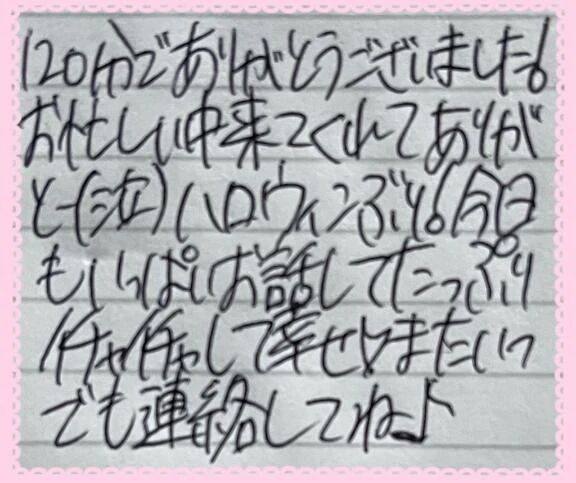 120分でありがとうございました!
お忙しい中来てくれてありが
と〜(泣)ハロウィンぶり!今日
もいっぱいお話してたっぷり
イチャイチャして幸せ♡またいつ
でも連絡してね♪